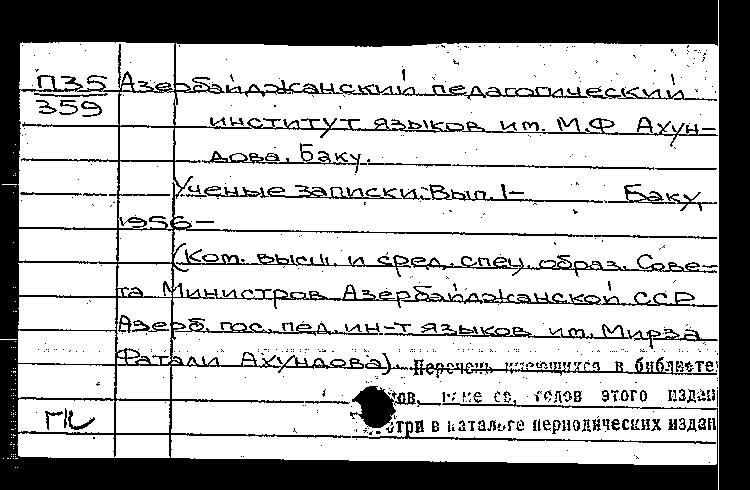 П35 Азербайджанский педагогический
359
институт языков им. М.Ф. Ахун-
дова. Баку.
Ученые записки. Вып. 1- Баку,
1956-
(Ком. высш. и сред. спец. образ. Сове-
та Министров Азербайджанской ССР
Азерб. гос. пед. ин-т языков им. Мирза
Фатали Ахундова). Перечень имеющихся в библиоте
годов этого издан
в каталоге периодических издан
ГК